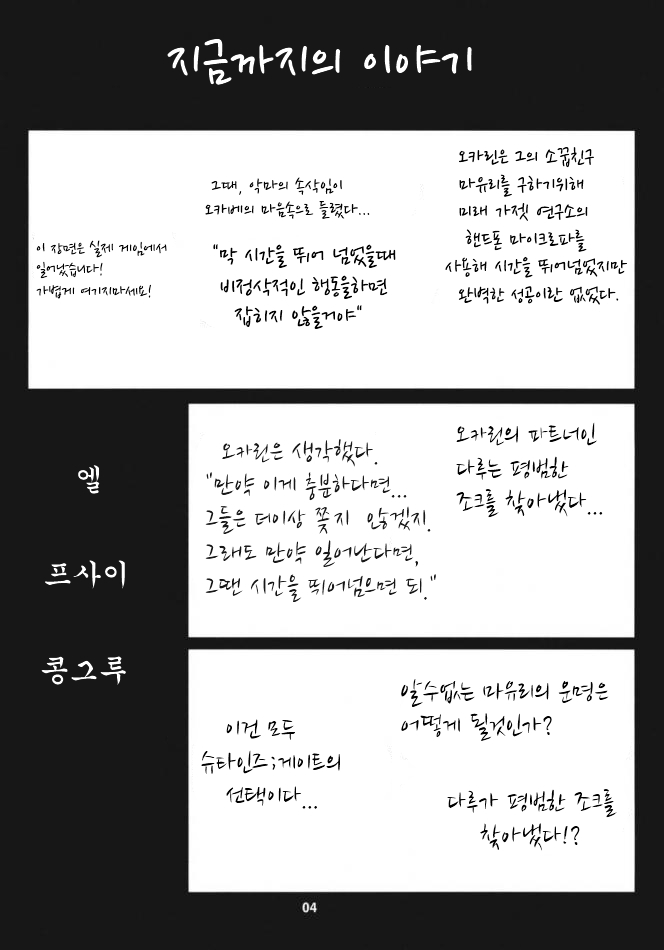 지금까지의 이야기
오카린은 그의 소꿉친구
마유리를 구하기위해
미래 가젯 연구소의
핸드폰 마이크로파를
사용해 시간을 뛰어넘었지만
완벽한 성공이란 없었다.
그때, 악마의 속삭임이
오카베의 마음속으로 들렸다...
"막 시간을 뛰어 넘었을때
비정삭적인 행동을하면
잡히지 않을거야"
이 장면은 실제 게임에서
일어났습니다!
가볍게 여기지마세요!
오카린의 파트너인
다루는 평범한
조크를 찾아냈다...
오카린은 생각했다.
"만약 이게 충분하다면...
그들은 더이상 쫒지 않겠지.
그래도 만약 일어난다면,
그땐 시간을 뛰어넘으면 되."
엘
프사이
콩그루
알수없는 마유리의 운명은
어떻게 될것인가?
다루가 평범한 조크를
찾아냈다!?
이건 모두
슈타인즈;게이트의
선택이다...
04